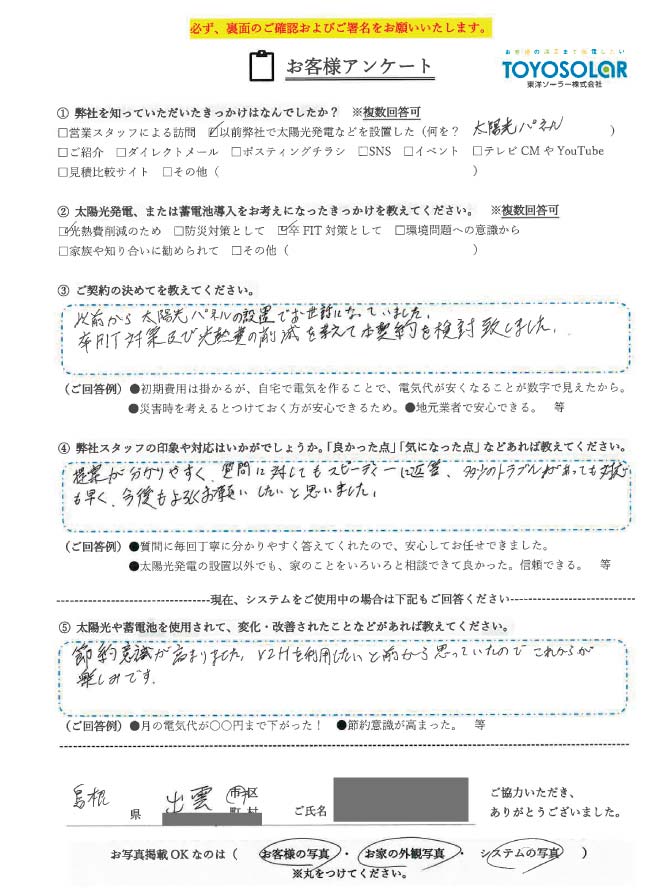 必ず、裏面のご確認およびご署名をお願いいたします。
お客様アンケート
お客様の満足まで発電したい
TOYOSOLAR
東洋ソーラー株式会社
① 弊社を知っていただいたきっかけはなんでしたか？ ※複数回答可
□営業スタッフによる訪問 ☑以前弊社で太陽光発電などを設置した（何を？ 太陽光パネル ）
□ご紹介 □ダイレクトメール □ポスティングチラシ □SNS □イベント □テレビCMやYouTube
□見積比較サイト □その他（ ）
② 太陽光発電、または蓄電池導入をお考えになったきっかけを教えてください。 ※複数回答可
☑光熱費削減のため □防災対策として ☑卒FIT対策として □環境問題への意識から
□家族や知り合いに勧められて □その他（ ）
③ ご契約の決めてを教えてください。
以前から太陽光パネルの設置でお世話になっていました。
卒FIT対策及び光熱費の削減を考えて本契約を検討致しました。
（ご回答例）●初期費用は掛かるが、自宅で電気を作ることで、電気代が安くなることが数字で見えたから。
●災害時を考えるとつけておく方が安心できるため。●地元業者で安心できる。 等
④ 弊社スタッフの印象や対応はいかがでしょうか。「良かった点」「気になった点」などあれば教えてください。
提案が分かりやすく、質問に対してもスピーディーに返答、多少のトラブルがあっても対応
も早く、今後もよろしくお願いしたいと思いました。
（ご回答例）●質問に毎回丁寧に分かりやすく答えてくれたので、安心してお任せできました。
●太陽光発電の設置以外でも、家のことをいろいろと相談できて良かった。信頼できる。 等
現在、システムをご使用中の場合は下記もご回答ください
⑤ 太陽光や蓄電池を使用されて、変化・改善されたことなどがあれば教えてください。
節約意識が高まりました。V2Hを利用したいと前から思っていたのでこれからが
楽しみです。
（ご回答例）●月の電気代が〇〇円まで下がった！ ●節約意識が高まった。 等
島根 県 出雲 市区 ご氏名
町村
ご協力いただき、
ありがとうございました。
お写真掲載OKなのは（ お客様の写真 ・ お家の外観写真 ・ システムの写真 ）
※丸をつけてください。